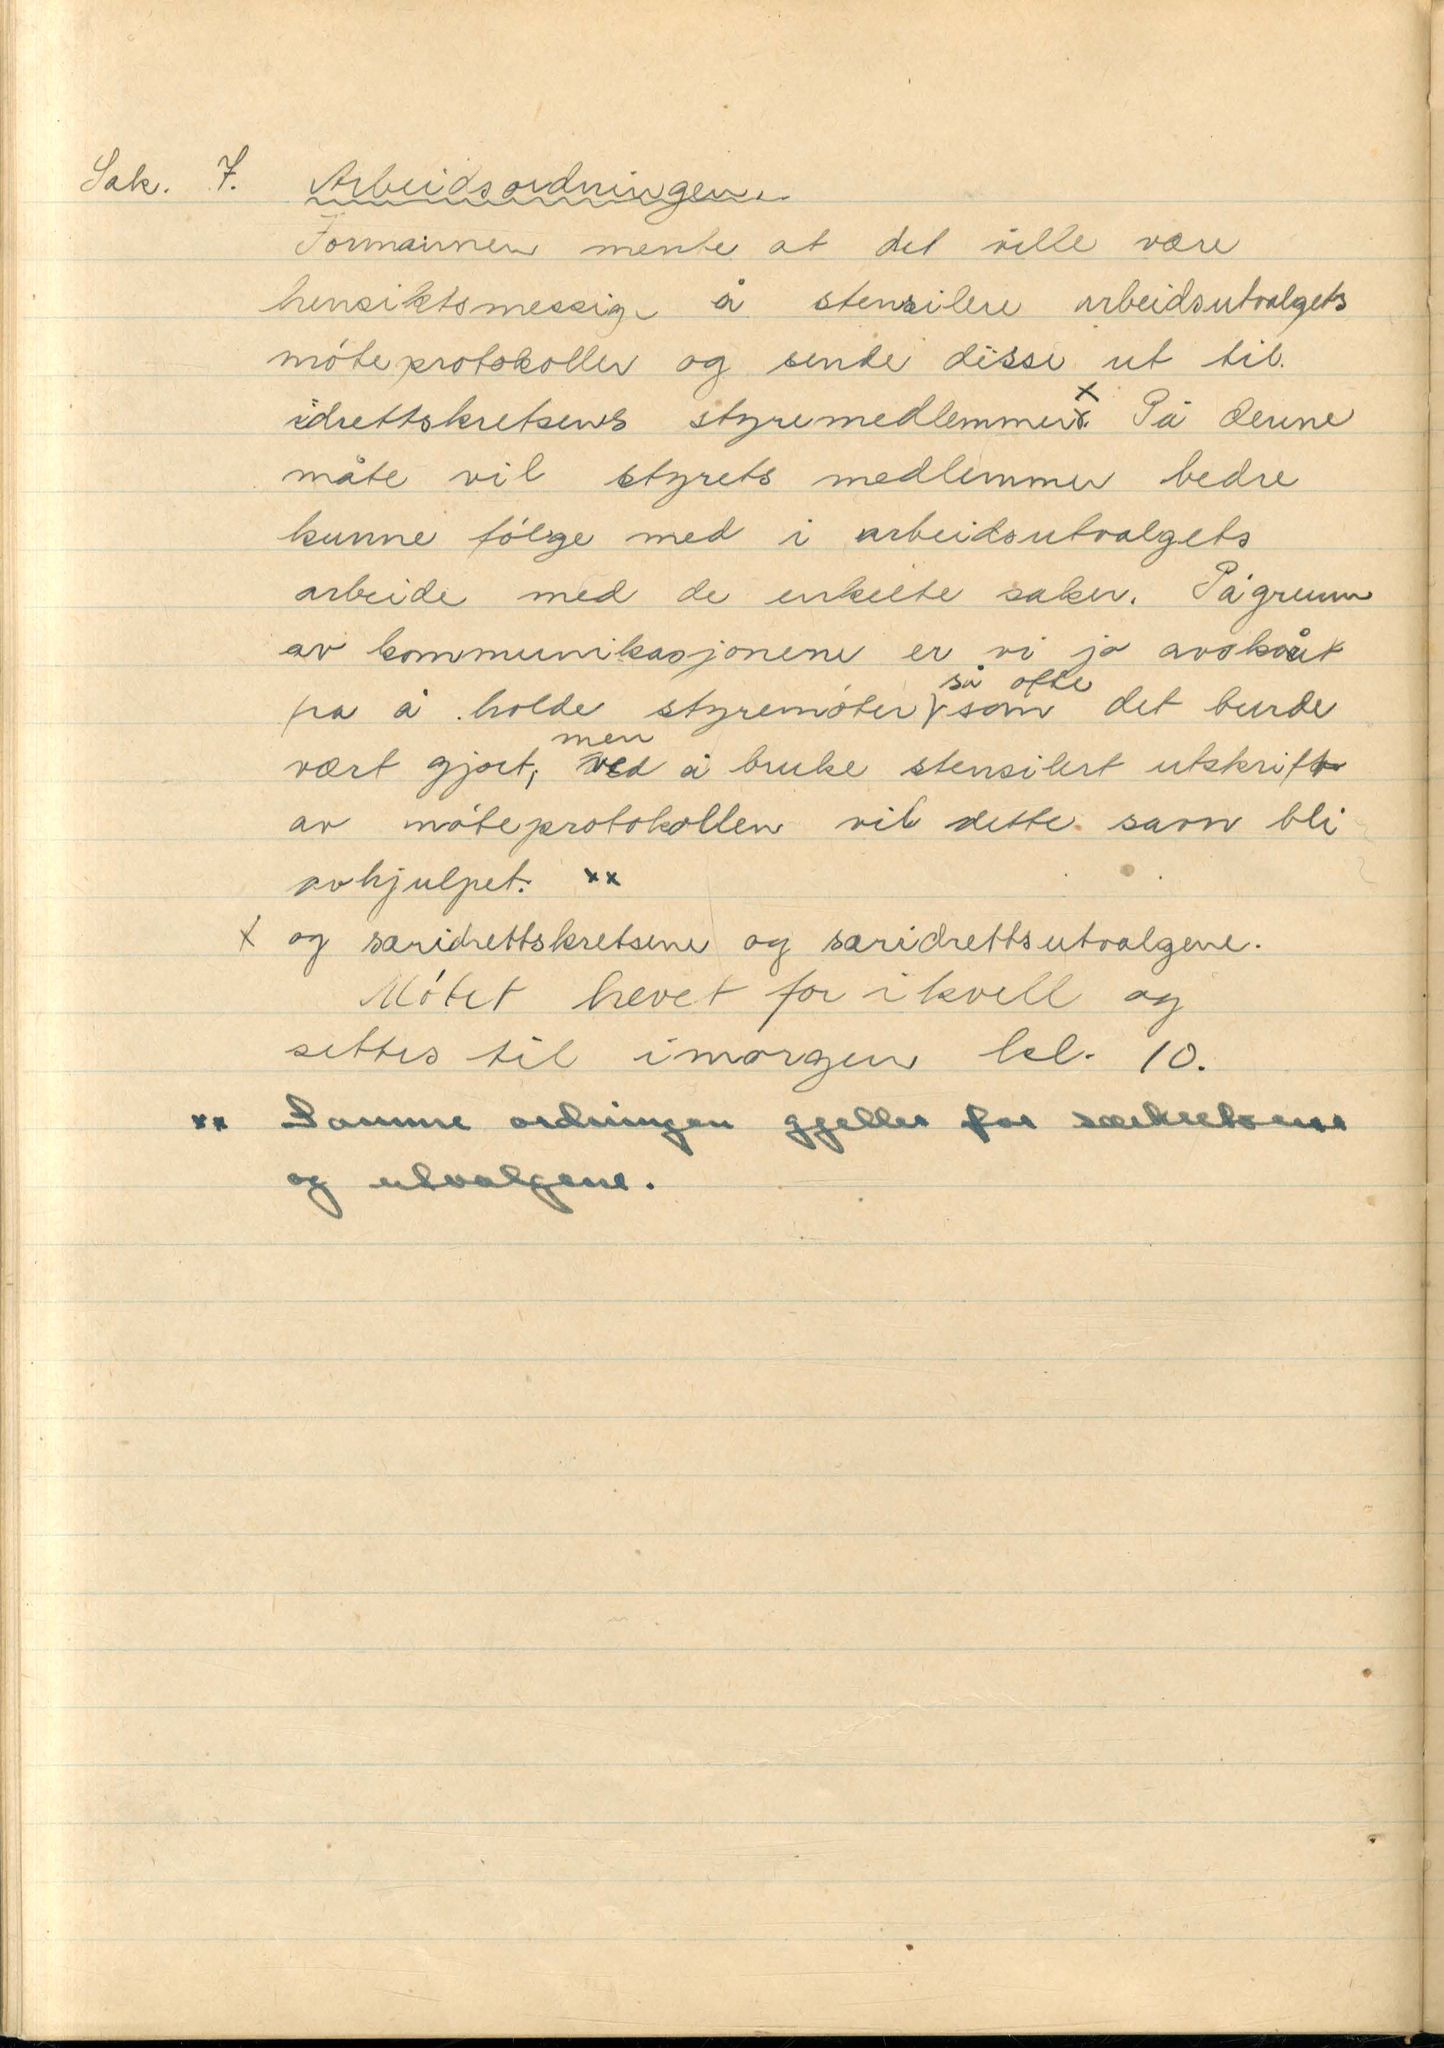 Sak. 7. Arbeidsordningen.
Formannen mente at det ville være
hensiktsmessig å stensilere arbeidsutvalgets
møteprotokoller og sende disse ut til
idrettskretsens styremedlemmer x. På denne
måte vil styrets medlemmer bedre
kunne følge med i arbeidsutvalgets
arbeide med de enkelte saker. På grunn
av kommunikasjonene er vi jo avskåret
fra å holde styremøter så ofte som det burde
vært gjort, men ved å bruke stensilert utskrift
av møteprotokollen vil dette savn bli
avhjulpet. xx
x og særidrettskretsene og særidrettsutvalgene.
Møtet hevet for ikvell og
settes til imorgen kl. 10.
xx Samme ordningen gjelder for særkretsene
og utvalgene.